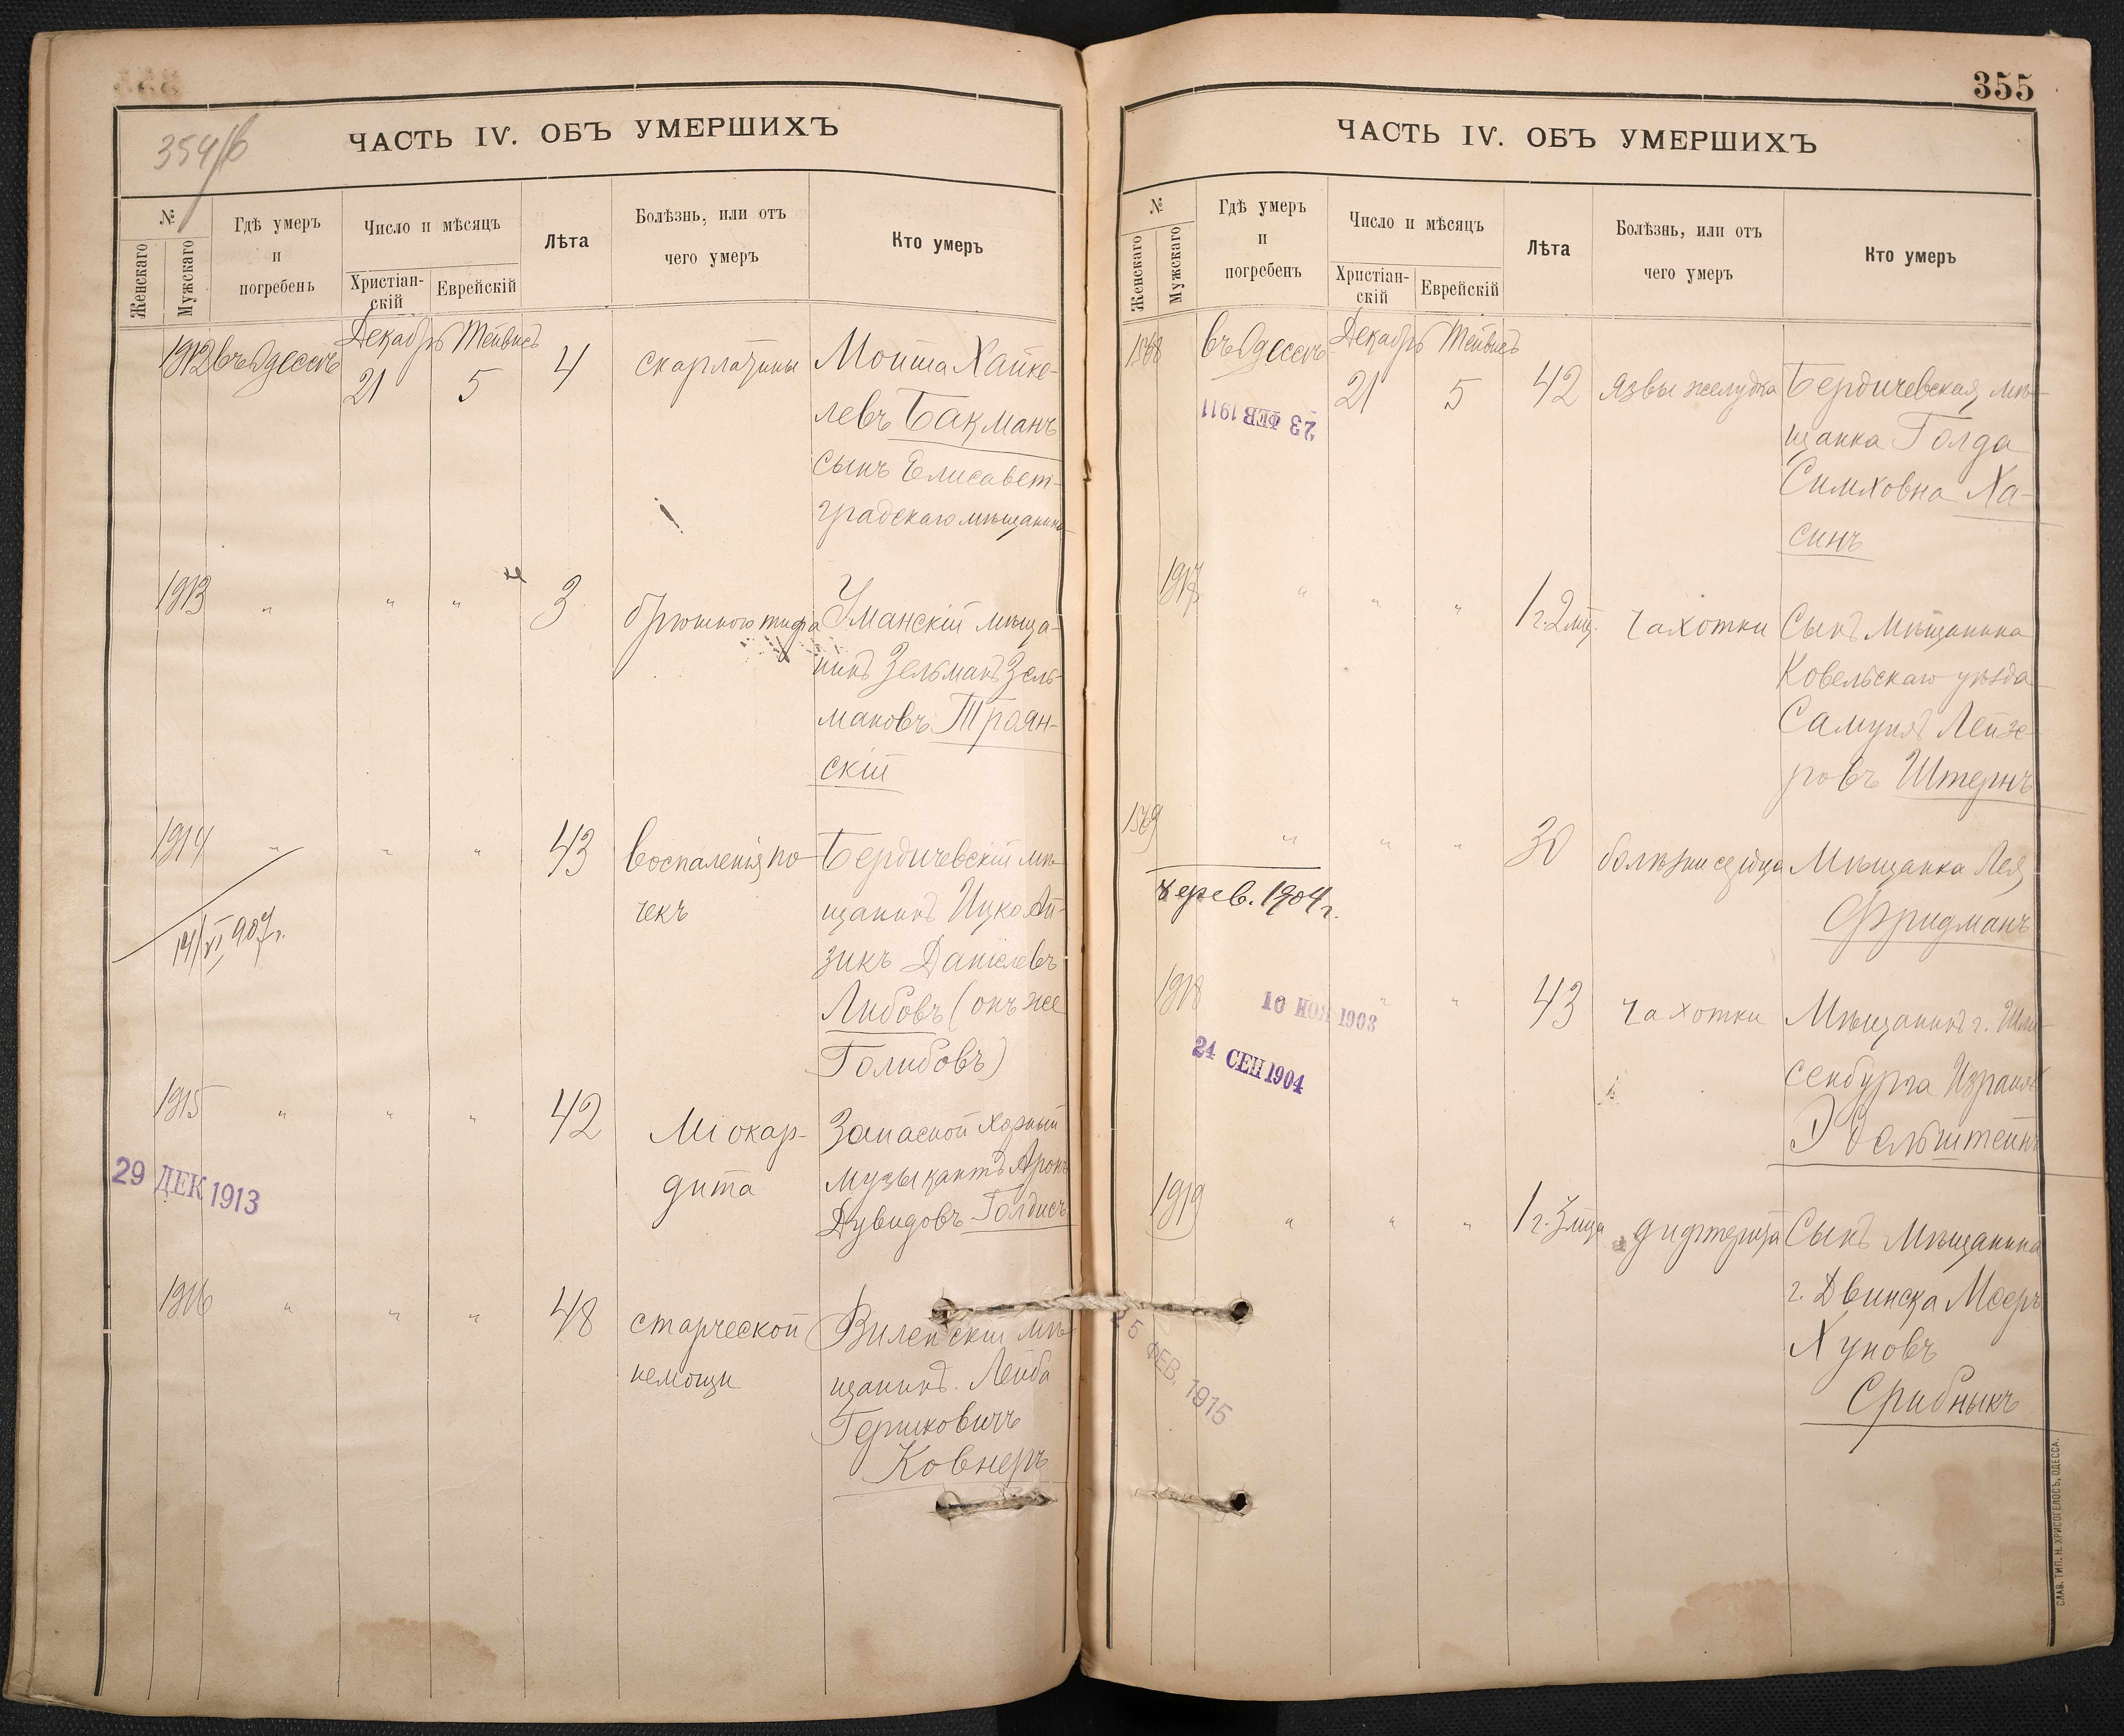 354/б
ЧАСТЬ IV. ОБЪ УМЕРШИХЪ
№
Женскаго
Мужскаго
Гдѣ умеръ
и
погребенъ
Число и мѣсяцъ
Христіан-
скій
Еврейскій
Лѣта
Болѣзнь, или отъ
чего умеръ
Кто умеръ
1912 въ Одессѣ Декабрь 21 Тейвисъ 5 4 скарлатины Мойша Хайке-
левъ Бакманъ
сынъ Елисавет-
градскаго мѣщанина
1913 " " " 3 брюшного тифа Уманскій мѣща-
нинъ Зельманъ Зель-
мановъ Троян-
скій
1914 " " " 43 воспаленія по- Бердичевскій мѣ-
чекъ щанинъ Ицко Ай-
14/VI 907 г.
зикъ Даніелевъ
Либовъ (онъ же
Голибовъ)
1915 " " " 42 Міокар- Запасной хорный
дита музыкантъ Аронъ
29 ДЕК 1913
Дувидовъ Голдисъ
1916 " " " 48 старческой Виленскій мѣ-
немощи щанинъ Лейба
Гершковичъ
Ковнеръ
355
ЧАСТЬ IV. ОБЪ УМЕРШИХЪ
№
Женскаго
Мужскаго
Гдѣ умеръ
и
погребенъ
Число и мѣсяцъ
Христіан-
скій
Еврейскій
Лѣта
Болѣзнь, или отъ
чего умеръ
Кто умеръ
1568 въ Одессѣ Декабрь 21 Тейвисъ 5 42 язвы желудка Бердичевская мѣ-
23 ФЕВ 1911
щанка Голда
Симховна Ха-
синъ
1917 " " " 1 г. 2 мц. чахотки Сынъ мѣщанина
Ковельскаго уѣзда
Самуилъ Лейзе-
ровъ Штернъ
1569 " " " 30 болѣзни сердца Мѣщанка Лея
Фридманъ
1904 г.
1918 " " 43 чахотки Мѣщанинъ г. Шли-
10 НОЯ 1903
24 СЕН 1904
сенбурга Израиль
1919 " " " 1 г. 3 мца дифтерита Сынъ мѣщанина
г. Двинска Мееръ
Хуновъ
Срибныкъ
5 ФЕВ. 1915
СЛАВ. ТИП. Н. ХРИСОГЕЛОСЪ, ОДЕССА.